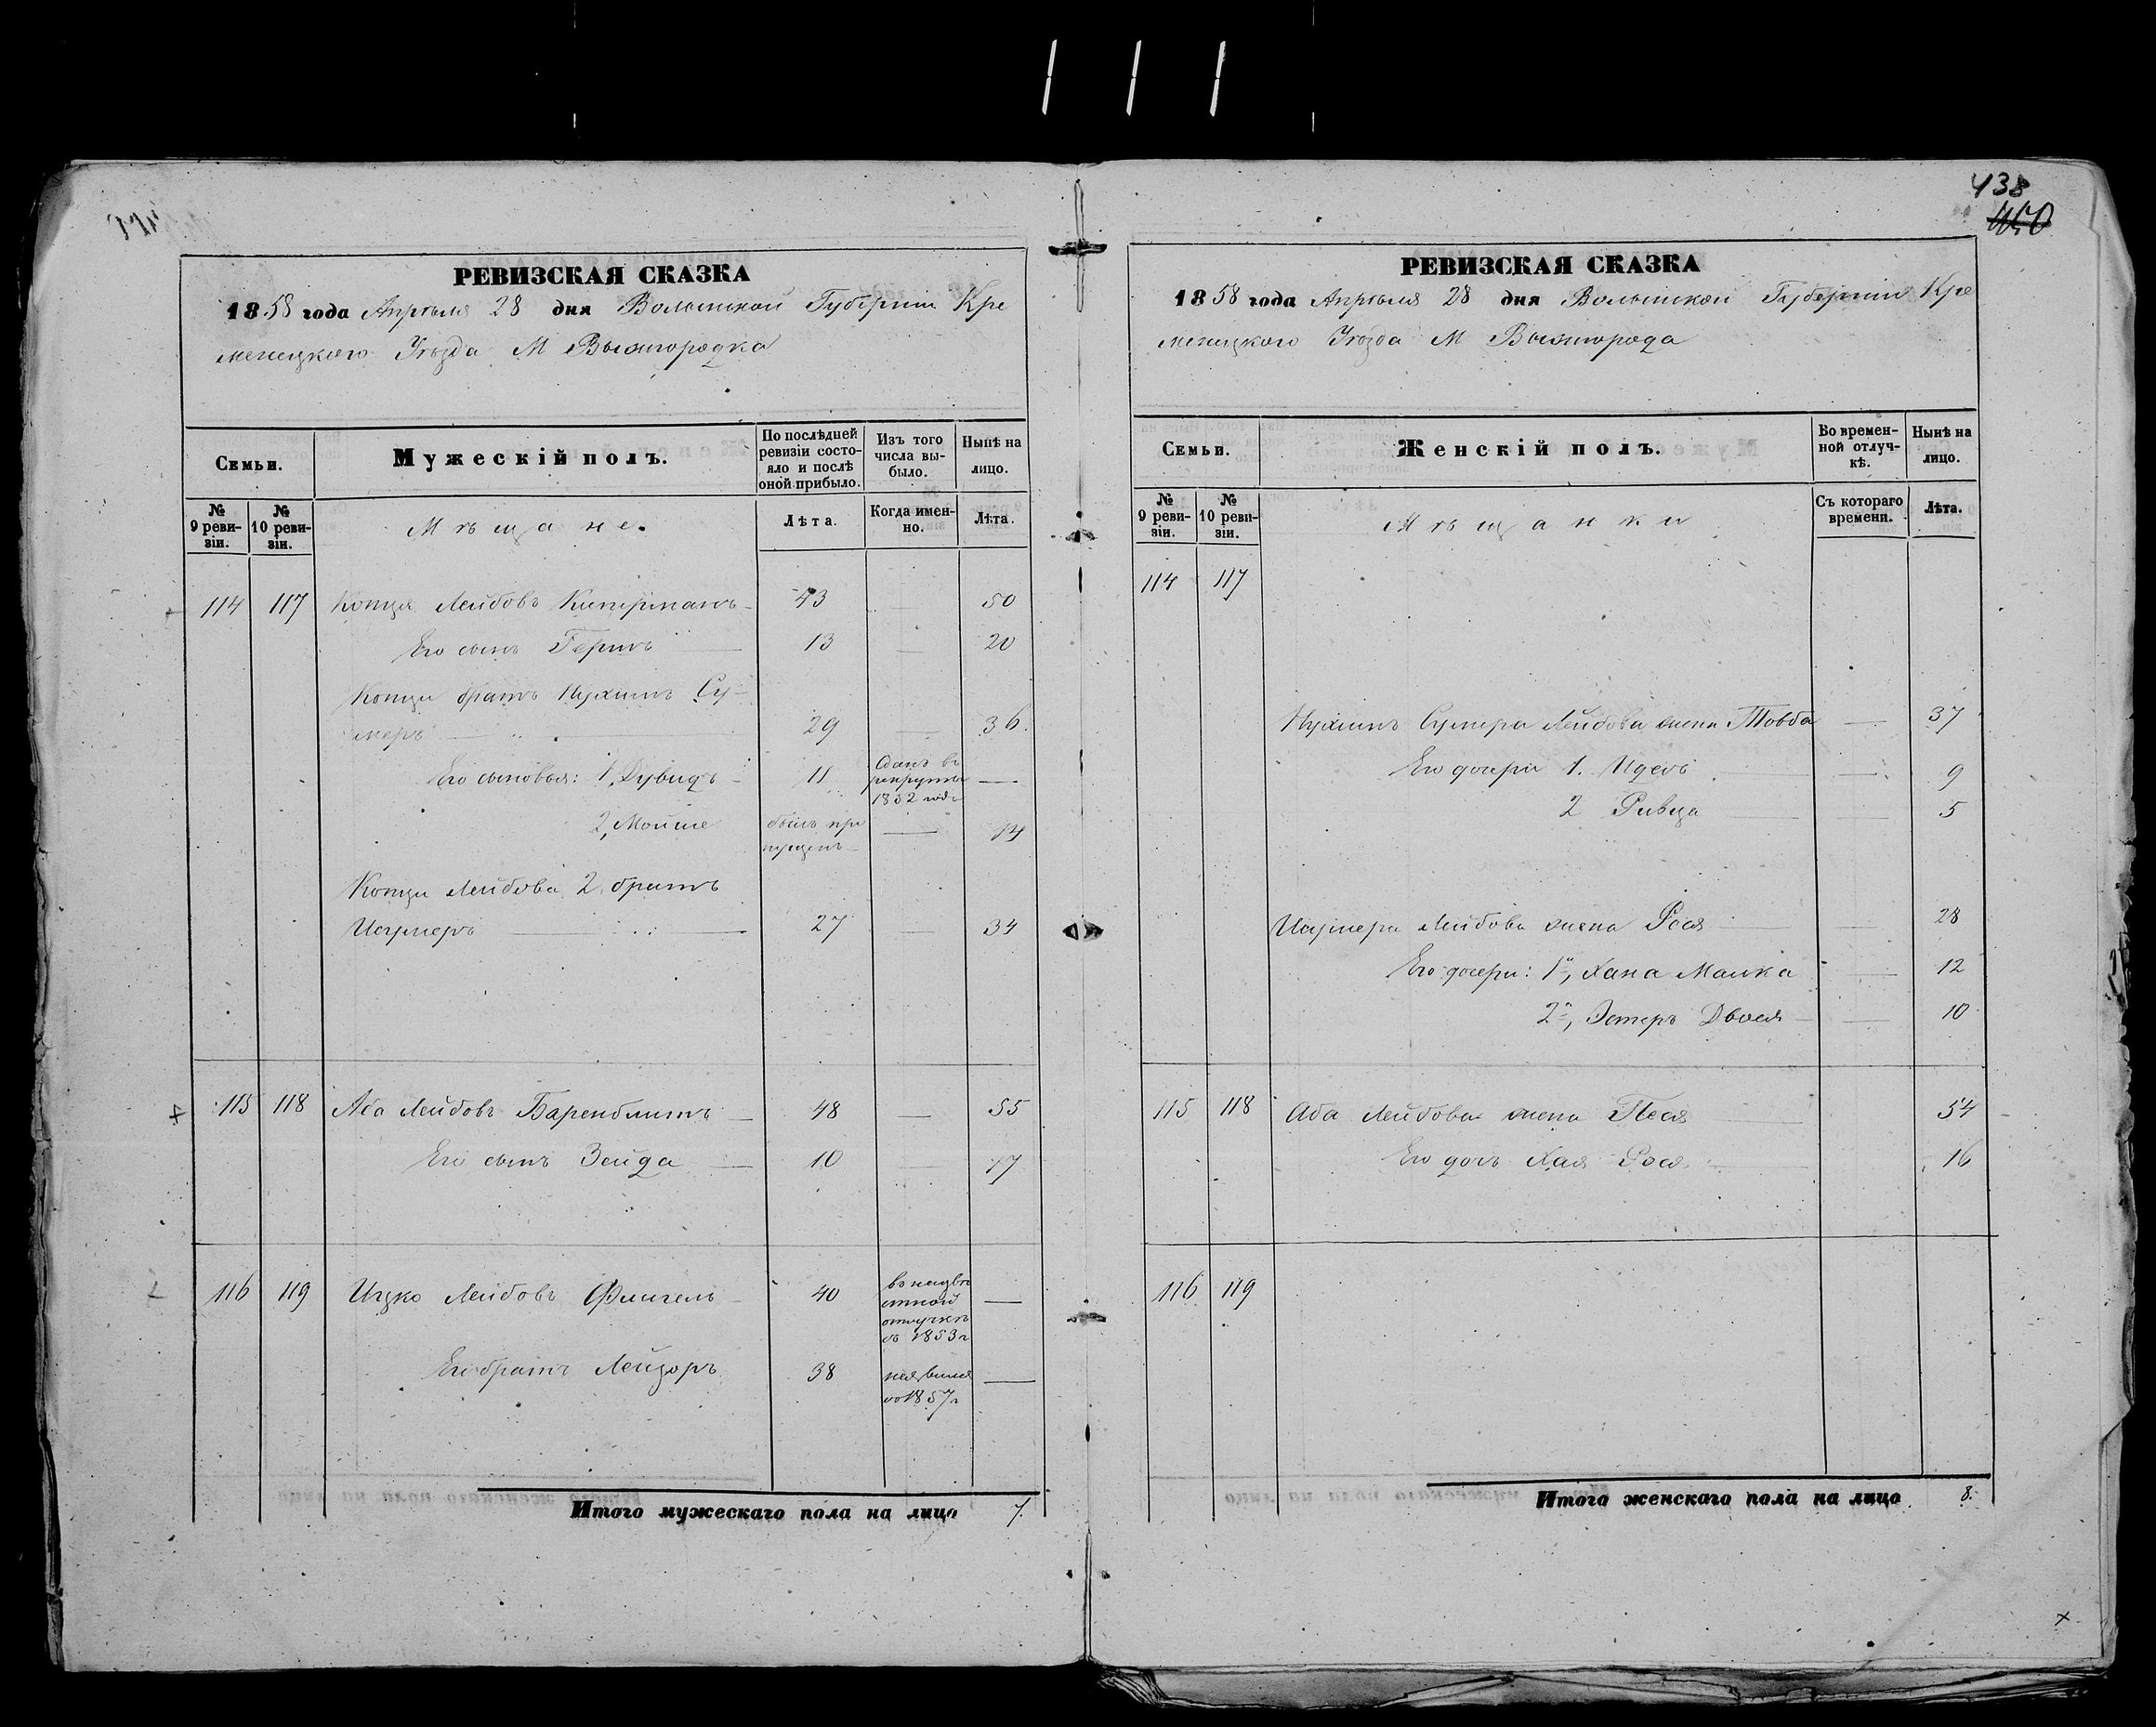 438
450
РЕВИЗСКАЯ СКАЗКА
1858 года Апрѣля 28 дня Волынской Губерніи Кре
менецкого Уѣзда М Вышгородка
Семьи.
Мужескій полъ.
По послѣдней ревизіи состояло и послѣ оной прибыло.
Изъ того числа выбыло.
Нынѣ на лицо.
№ 9 ревизіи.
№ 10 ревизіи.
Мѣщане.
Лѣта.
Когда именно.
Лѣта.
114 117 Копця Лейбовъ Киперманъ 43 — 50
Его сынъ Гершъ 13 — 20
Копци братъ Нухимъ Су-
меръ 29 — 36
Его сыновья: 1, Дувидъ 11 Сданъ въ рекруты 1852 года —
2, Мойше былъ пропущенъ — 14
Копци Лейбова 2 братъ
27 — 34
115 118 Аба Лейбовъ Баренблитъ 48 — 55
Его сынъ Зейда 10 17
116 119 Ицко Лейбовъ Флигель 40 въ неизвѣстной отлучкѣ съ 1853 г —
Его братъ Лейзоръ 38 1857 г —
Итого мужескаго пола на лицо 7.
РЕВИЗСКАЯ СКАЗКА
1858 года Апрѣля 28 дня Волынской Губерніи Кре
менецкого Уѣзда М Вышгорода
Семьи.
Женскій полъ.
Во временной отлучкѣ.
Нынѣ на лицо.
№ 9 ревизіи.
№ 10 ревизіи.
Мѣщанки
Съ котораго времени.
Лѣта.
114 117
Нухимъ Сумера Лейбова жена Товба — 37
Его дочери 1. Идесъ — 9
2 Ривца — 5
Лейбова жена Рося — 28
Его дочери: 1я, Хана Малка — 12
2я, Эстеръ Двося — 10
115 118 Аба Лейбова жена Песя 54
Его дочь Хая Рося 16
116 119
Итого женскаго пола на лицо 8.